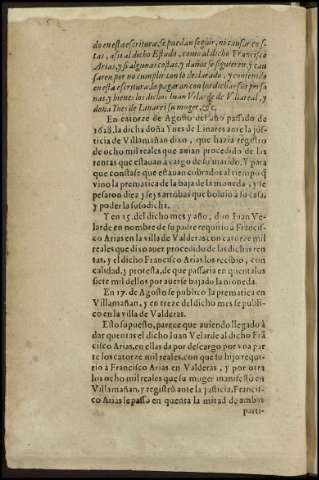 do en esta escritura, se puedan seguir, ni causar cos-
tas, assi al dicho Estado, como al dicho Francisco
Arias, y si algunas costas, y daños se siguieren, y cau
saren por no cumplir con lo declarado, y contenido
en esta escritura, lo pagaran con los dichos sus perso
nas, y bienes los dichos Iuan Velarde de Villareal, y
doña Ines de Linares su muger, &c.
En catorze de Agosto del año passado de
1628. la dicha doña Ynes de Linares ante la jus-
ticia de Villamañan dixo, que hazia registro
de ocho mil reales que auian procedido de las
rentas que estauan a cargo de su marido. Y para
que constasse que estauan cobrados al tiempo q̃
vino la prematica de la baja de la moneda, y se
pesaron diez y seys arrobas que boluio a su casa,
y poder la susodicha.
Y en 15. del dicho mes y año, don Iuan Ve-
larde en nombre de su padre requirio a Francis-
co Arias en la villa de Valderas, con catorze mil
reales que dixo auer procedido de las dichas ren
tas, y el dicho Francisco Arias los recibio, con
calidad, y protesta, de que passaria en quenta los
siete mil dellos por auerse bajado la moneda.
En 17. de Agosto se publico la prematica en
Villamañan, y en treze del dicho mes se publi-
co en la villa de Valderas.
Esto supuesto, parece que auiendo llegado à
dar quentas el dicho Iuan Velarde al dicho Frã
cisco Arias, en ellas da por descargo por vna par
te los catorze mil reales, con que su hijo requi-
rio à Francisco Arias en Valderas, y por otra
los ocho mil reales que su muger manifestò en
Villamañan, y registrò ante la justicia, Francis-
co Arias le passò en quenta la mitad de ambas
parti-